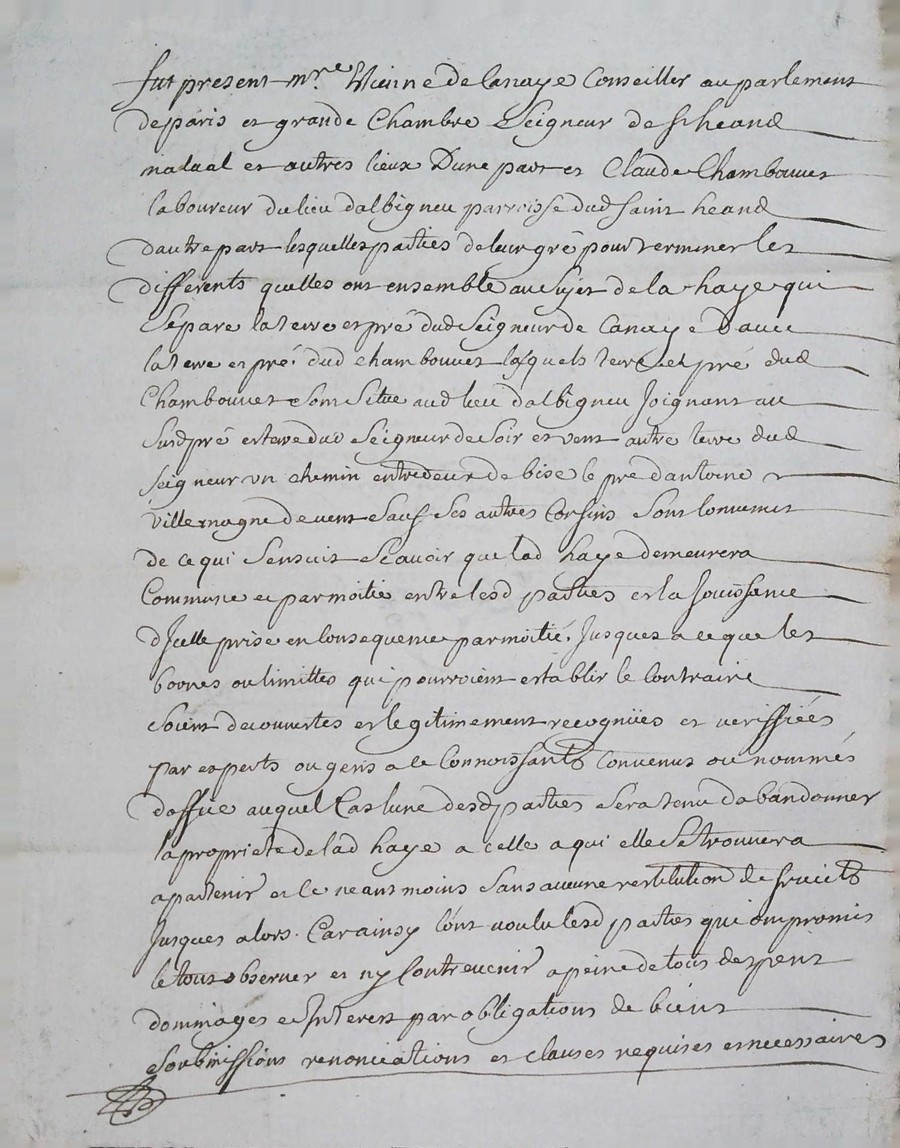 fut present mre Etienne de Canaye Conseiller au parlement
de paris et grande Chambre Seigneur de st heand
nadaal et autres lieux Dune part et Claude Chambouvet
laboureur du lieu dalbigneu parroisse dud saint heand
dautre part lesquelles parties de leur gré pour terminer les
differents quelles ont ensemble au sujet de la haye qui
separe la terre et pré dud Seigneur de Canaye Davec
la terre et pré dud chambouvet lesquels terre et pré dud
Chambouvet sont situe aud lieu dalbigneu Joignant au
susd pré et terre dud Seigneur de soir et vent autre terre dud
seigneur un chemin entredeux de bise le pré dantoine
Villemagne de vent sauf ses autres Confins sont convenus
de ce qui sensuit scavoir que lad haye demeurera
Commune et par moitié entre lesd parties et la Jouissance
dJcelle prise en consequence par moitié, Jusques a ce que les
bornes ou limittes qui pourroient establir le contraire
soient decouvertes et legitimement recognües et veriffiées
par experts ou gens a ce Connoissants convenus ou nommés
doffice auquel Cas lune desd parties sera tenu dabandonner
la proprieté de lad haye a celle a qui elle se trouvera
apartenir et ce neantmoins sans aucune restitution de fruicts
Jusques alors. Car ainsy lont voulu lesd parties qui ont promis
le tout observer et ny contrevenir a peine de tous despens
dommages et Jnterest par obligations de biens
soubmissions renonciations et clauses requises et necessaires